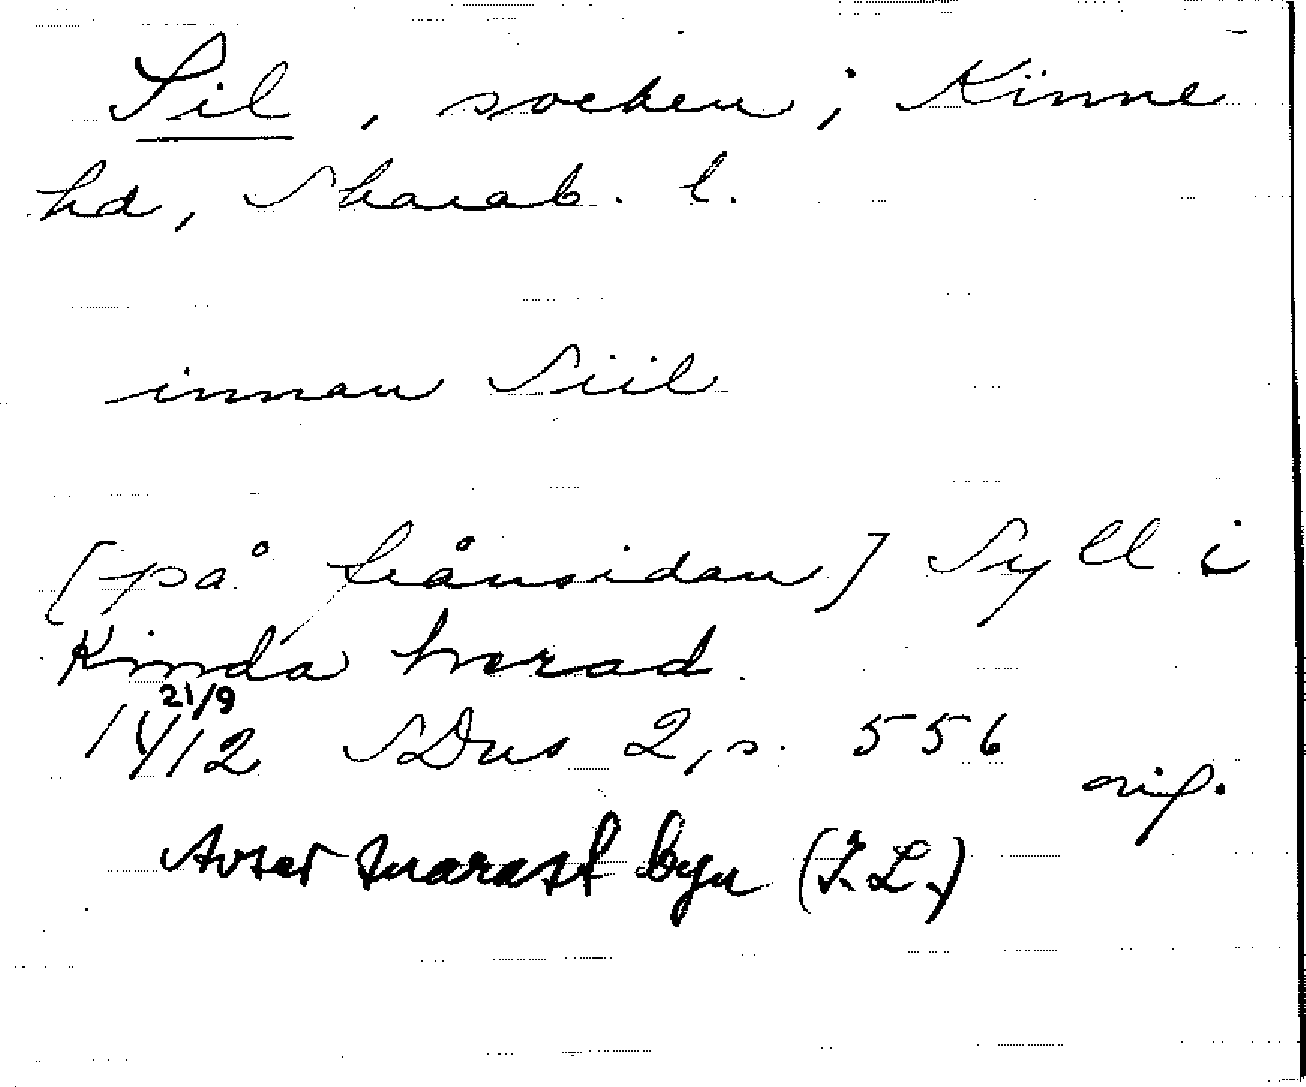 Sil, socken; Kinne
hd, Skarab. l.
innan Siil
[på frånsidan] Syll i
Kinda hærad
21/9
1412 SDns 2, s. 556
orig.
Avser snarast byn (I.L.)